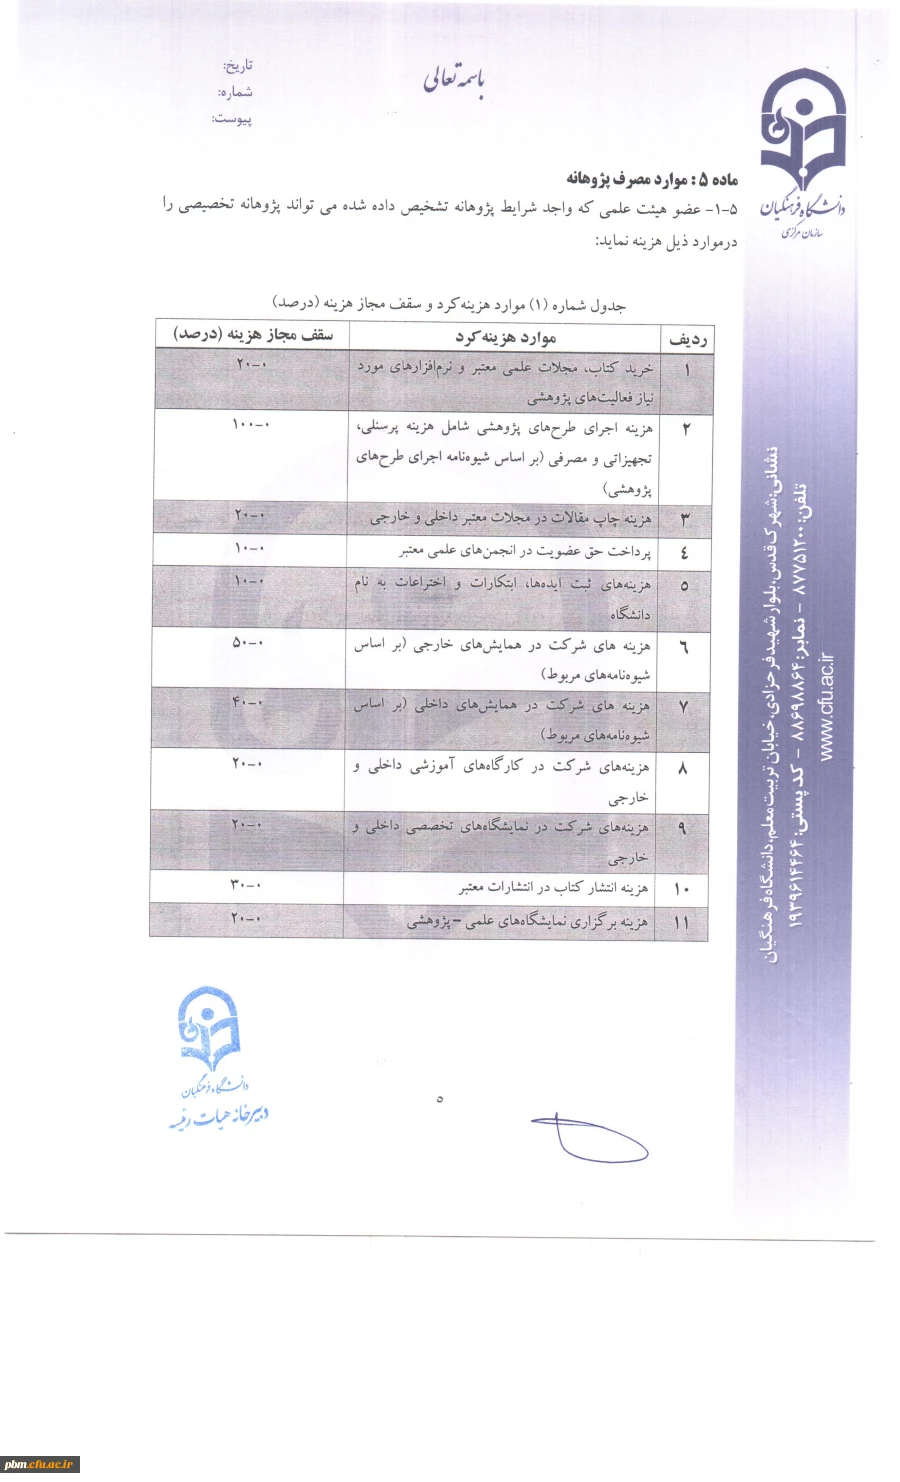 باسمه تعالی
تاریخ:
شماره:
پیوست:
دانشگاه فرهنگیان
سازمان مرکزی
ماده ۵ : موارد مصرف پژوهانه
۵-۱- عضو هیئت علمی که واجد شرایط پژوهانه تشخیص داده شده می تواند پژوهانه تخصیصی را
درموارد ذیل هزینه نماید:
جدول شماره (۱) موارد هزینه‌کرد و سقف مجاز هزینه (درصد)
ردیف موارد هزینه‌کرد سقف مجاز هزینه (درصد)
۱ خرید کتاب، مجلات علمی معتبر و نرم‌افزارهای مورد ۰-۲۰
نیاز فعالیت‌های پژوهشی
۲ هزینه اجرای طرح‌های پژوهشی شامل هزینه پرسنلی، ۰-۱۰۰
تجهیزاتی و مصرفی (بر اساس شیوه‌نامه اجرای طرح‌های
پژوهشی)
۳ هزینه چاپ مقالات در مجلات معتبر داخلی و خارجی ۰-۲۰
٤ پرداخت حق عضویت در انجمن‌های علمی معتبر ۰-۱۰
۵ هزینه‌های ثبت ایده‌ها، ابتکارات و اختراعات به نام ۰-۱۰
دانشگاه
٦ هزینه های شرکت در همایش‌های خارجی (بر اساس ۰-۵۰
شیوه‌نامه‌های مربوط)
۷ هزینه های شرکت در همایش‌های داخلی (بر اساس ۰-۴۰
شیوه‌نامه‌های مربوط)
۸ هزینه‌های شرکت در کارگاه‌های آموزشی داخلی و ۰-۲۰
خارجی
۹ هزینه‌های شرکت در نمایشگاه‌های تخصصی داخلی و ۰-۲۰
خارجی
۱۰ هزینه انتشار کتاب در انتشارات معتبر ۰-۳۰
۱۱ هزینه برگزاری نمایشگاه‌های علمی – پژوهشی ۰-۲۰
نشانی: شهرک قدس، بلوار شهید فرحزادی، خیابان تربیت معلم، دانشگاه فرهنگیان
تلفن: ۸۷۷۵۱۲۰۰ - نمابر: ۸۸۶۹۸۸۶۴ - کد پستی: ۱۹۳۹۶۱۴۴۶۴
www.cfu.ac.ir
دانشگاه فرهنگیان
دبیرخانه هیات رئیسه
۵
pbm.cfu.ac.ir